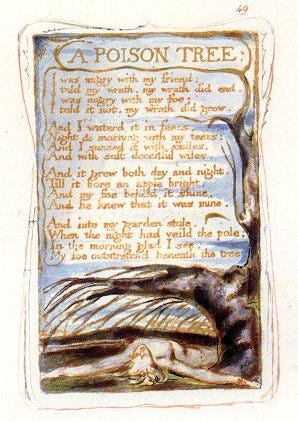 49
A POISON TREE.
I was angry with my friend:
I told my wrath, my wrath did end.
I was angry with my foe:
I told it not, my wrath did grow.
And I waterd it in fears,
Night & morning with my tears:
And I sunned it with smiles,
And with soft deceitful wiles.
And it grew both day and night,
Till it bore an apple bright.
And my foe beheld it shine,
And he knew that it was mine.
And into my garden stole.
When the night had veild the pole;
In the morning glad I see,
My foe outstretchd beneath the tree